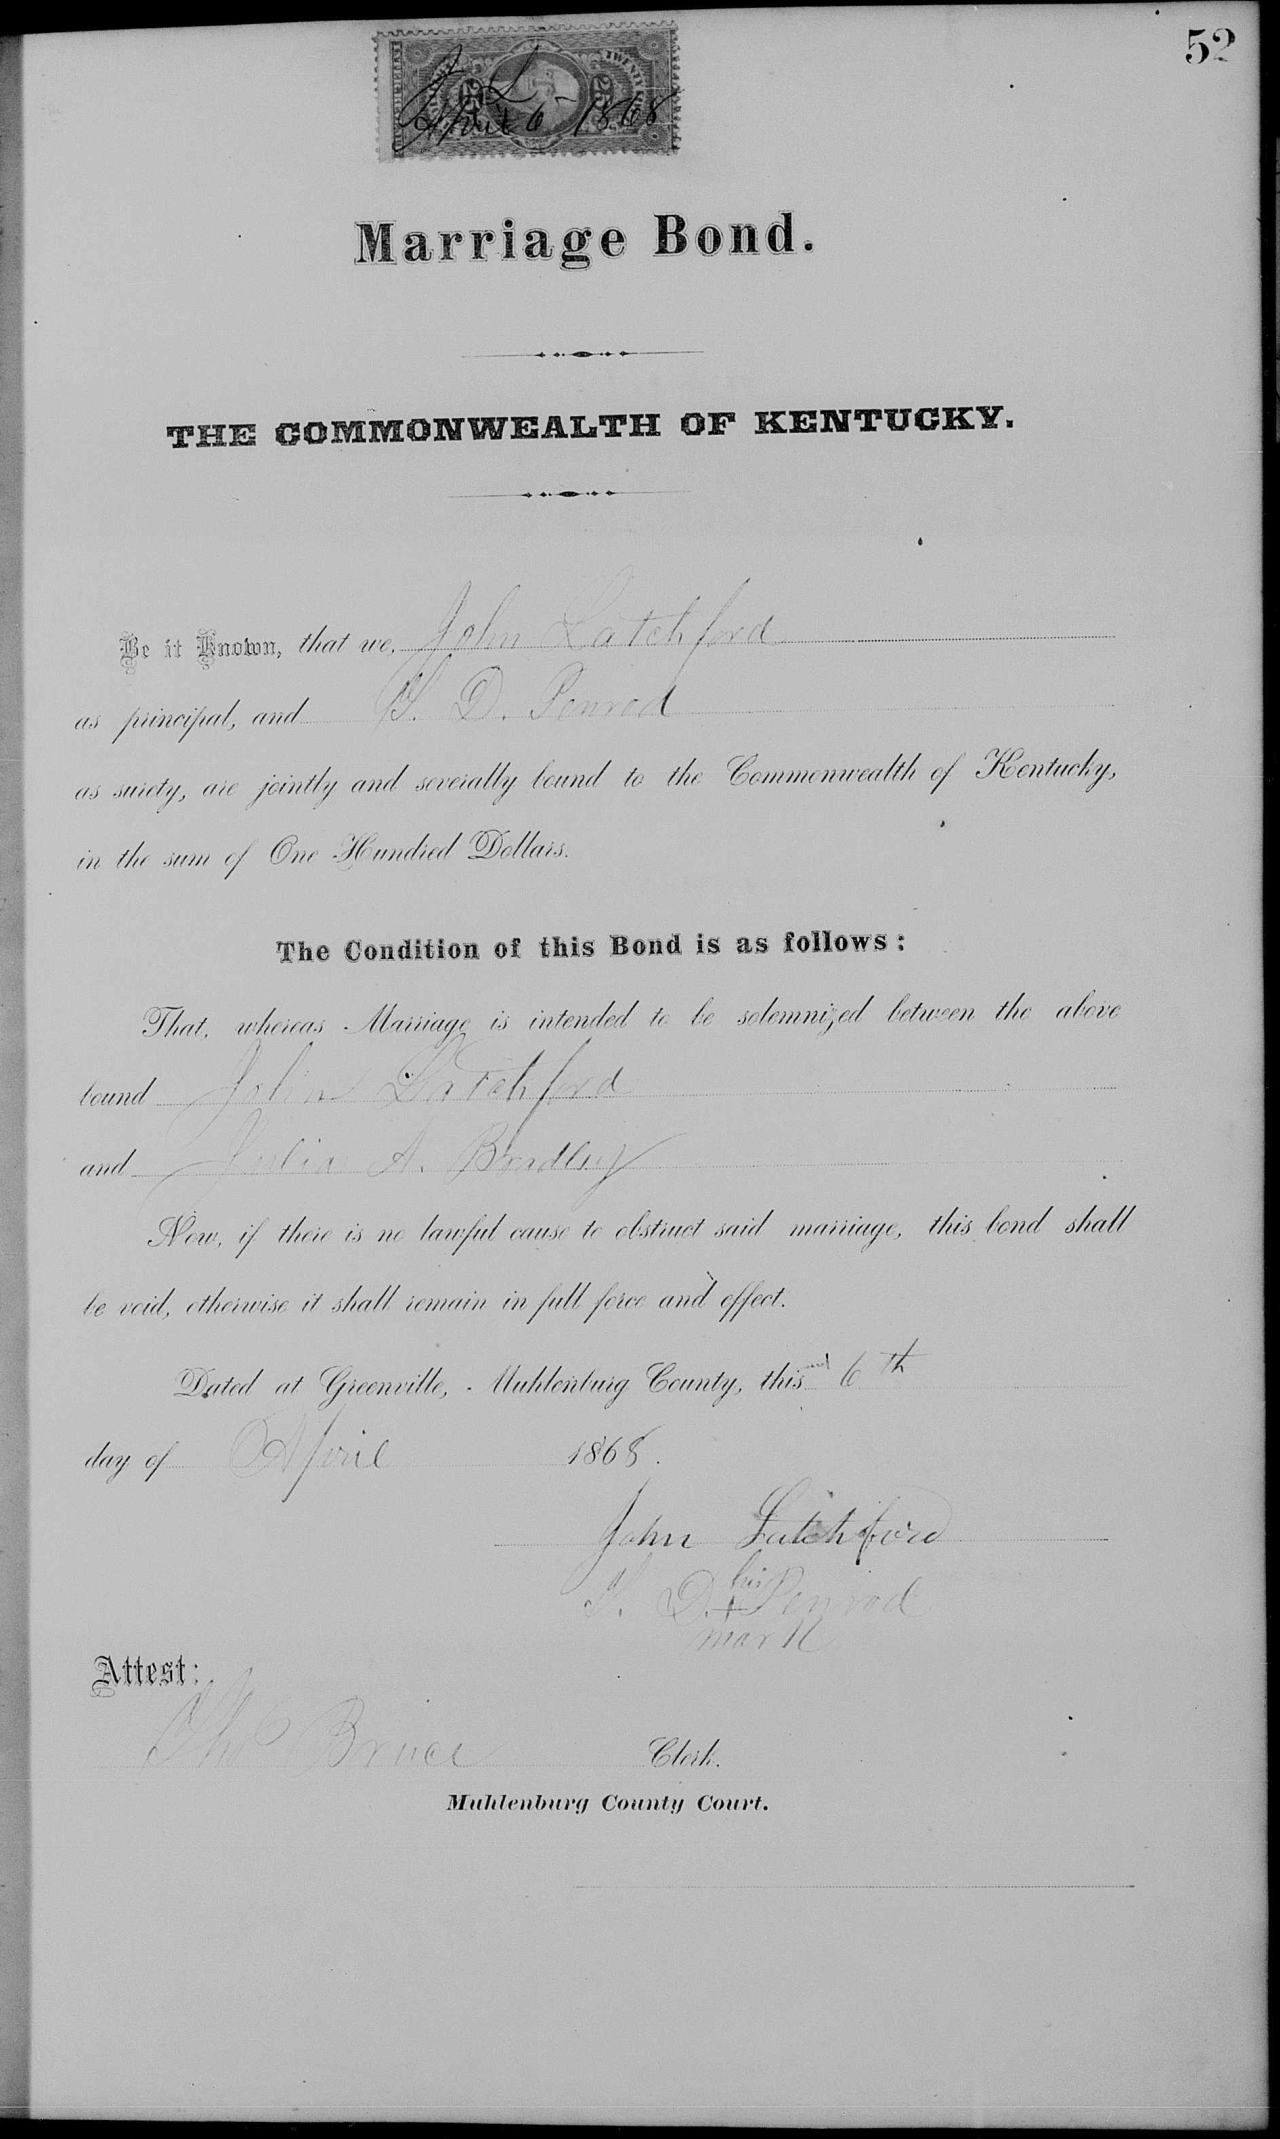 52
J L
April 6 1868
Marriage Bond.
THE COMMONWEALTH OF KENTUCKY.
Be it Known, that we, John Latchford
as principal, and S. D. Penrod
as surety, are jointly and severally bound to the Commonwealth of Kentucky,
in the sum of One Hundred Dollars.
The Condition of this Bond is as follows:
That, whereas Marriage is intended to be solemnized between the above
bound John Latchford
and Julia A. Bradley
Now, if there is no lawful cause to obstruct said marriage, this bond shall
be void, otherwise it shall remain in full force and effect.
Dated at Greenville, Muhlenburg County, this 6th
day of April 1868.
John Latchford
his
S. D. + Penrod
mark
Attest:
Tho Bruce Clerk.
Muhlenburg County Court.